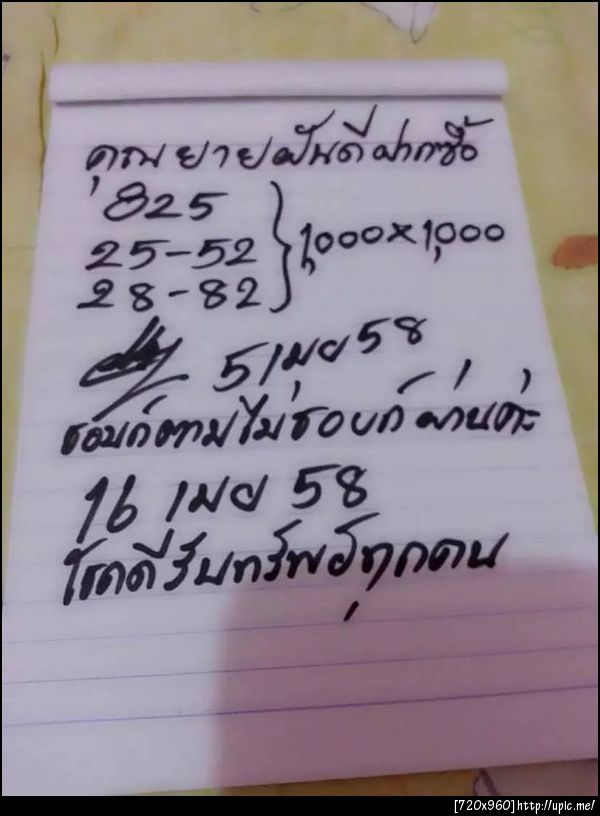 คุณยายฝันดีฝากซื้อ
825
25-52 } 1,000×1,000
28-82
5 เมย 58
ชอบก็ตามไม่ชอบก็ผ่านค่ะ
16 เมย 58
โชคดีรับทรัพย์ทุกคน
[720x960]http://upic.me/